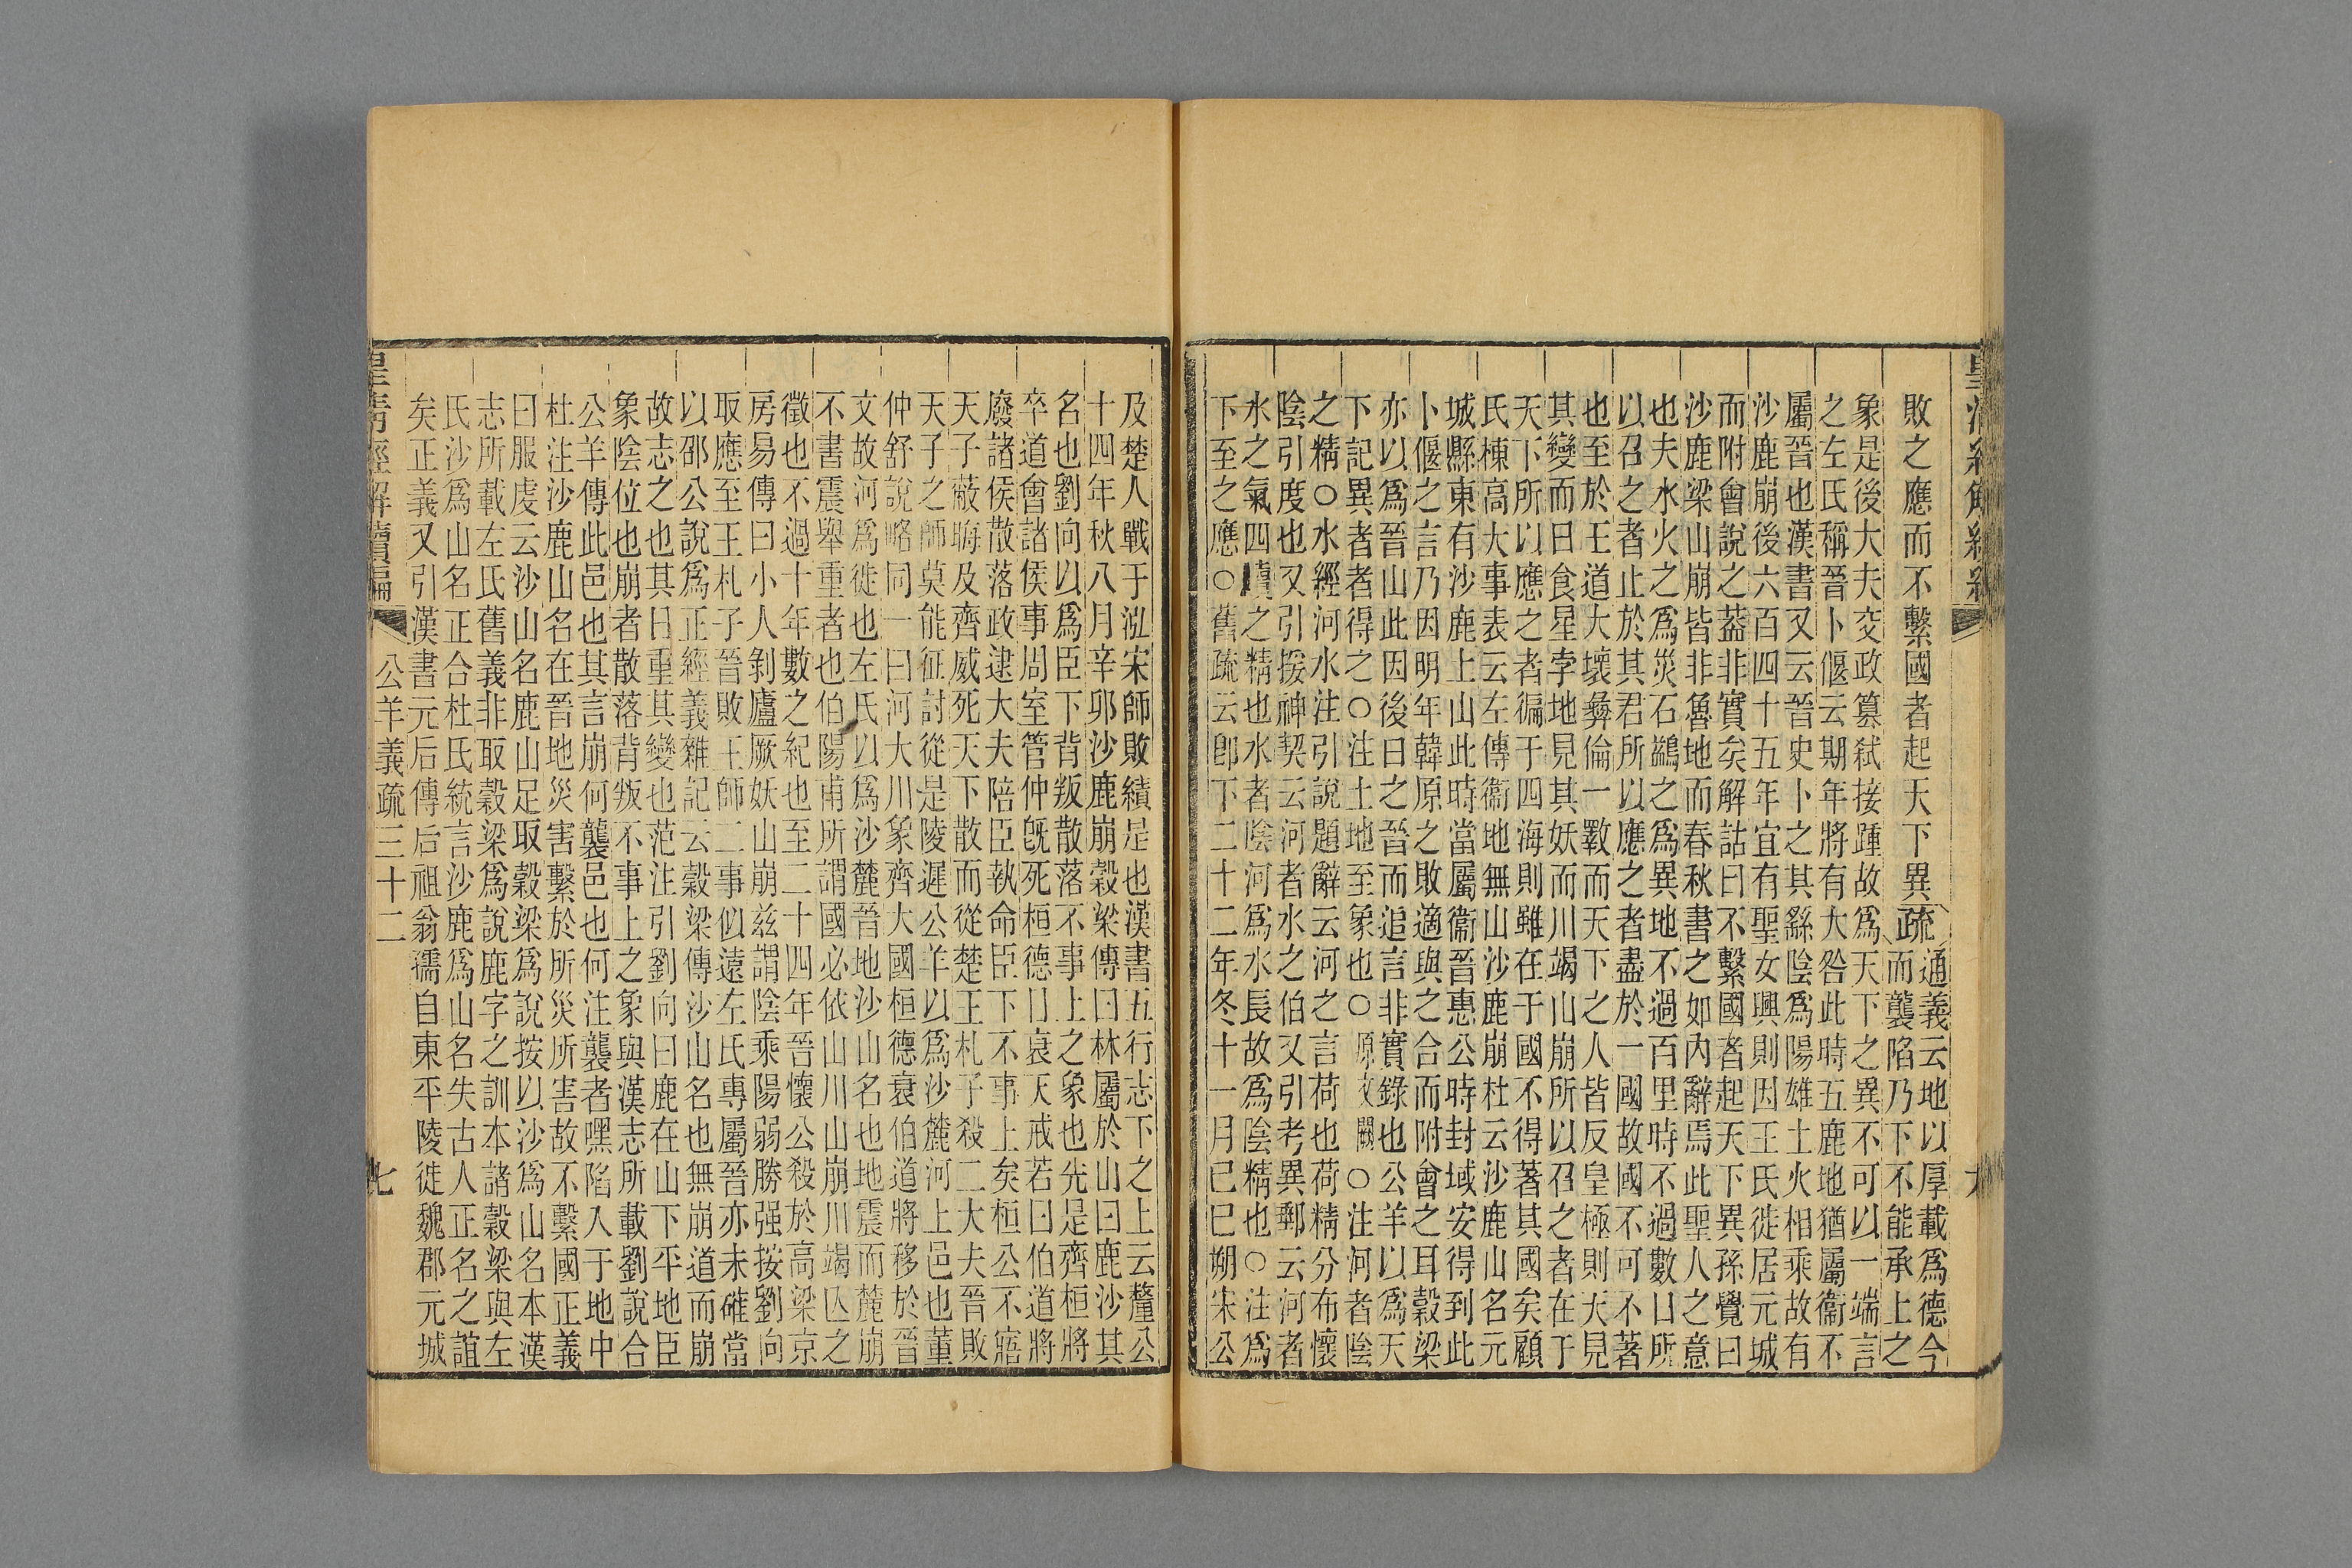 敗之應而不繫國者起天下異疏通義云地以厚載爲德今
而襲陷乃下不能承上之
象是後大夫交政篡弒接踵故爲天下之異不可以一端言
之左氏稱晉卜偃云期年將有大咎此時五鹿地猶屬衞不
屬晉也漢書又云晉史卜之其繇陰爲陽雄土火相乘故有
沙鹿崩後六百四十五年宜有聖女興則因王氏徙居元城
而附會說之葢非實矣解詁曰不繫國者起天下異孫覺曰
沙鹿梁山崩皆非魯地而春秋書之如內辭焉此聖人之意
也夫水火之爲災石鷁之爲異地不過百里時不過數日所
以召之者止於其君所以應之者盡於一國故國不可不著
也至於王道大壞彝倫一斁而天下之人皆反皇極則天見
其變而日食星孛地見其妖而川竭山崩所以召之者在于
天下所以應之者徧于四海則雖在于國不得著其國矣顧
氏棟高大事表云左傳衞地無山沙鹿崩杜云沙鹿山名元
城縣東有沙鹿土山此時當屬衞晉惠公時封域安得到此
卜偃之言乃因明年韓原之敗適與之合而附會之耳穀梁
亦以爲晉山此因後日之晉而追言非實錄也公羊以爲天
下記異者者得之○注土地至象也○原文闕○注河者陰
之精○水經河水注引說題辭云河之言荷也荷精分布懷
陰引度也又引援神契云河者水之伯又引考異郵云河者
水之氣四瀆之精也水者陰河爲水長故爲陰精也○注爲
下至之應○舊疏云卽下二十二年冬十一月己巳朔宋公
及楚人戰于泓宋師敗績是也漢書五行志下之上云釐公
十四年秋八月辛卯沙鹿崩穀梁傳曰林屬於山曰鹿沙其
名也劉向以爲臣下背叛散落不事上之象也先是齊桓將
卒道會諸侯事周室管仲旣死桓德日衰天戒若曰伯道將
廢諸侯散落政逮大夫陪臣執命臣下不事上矣桓公不寤
天子蔽晦及齊威死天下散而從楚王札子殺二大夫晉敗
天子之師莫能征討從是陵遲公羊以爲沙麓河上邑也董
仲舒說略同一曰河大川象齊大國桓德衰伯道將移於晉
文故河爲徙也左氏以爲沙麓晉地沙山名也地震而麓崩
不書震舉重者也伯陽甫所謂國必依山川山崩川竭亾之
徵也不過十年數之紀也至二十四年晉懷公殺於高梁京
房易傳曰小人剝廬厥妖山崩兹謂陰乘陽弱勝强按劉向
取應至王札子晉敗王師二事似遠左氏專屬晉亦未確當
以邵公說爲正經義雜記云穀梁傳沙山名也無崩道而崩
故志之也其日重其變也范注引劉向曰鹿在山下平地臣
象陰位也崩者散落背叛不事上之象與漢志所載劉說合
公羊傳此邑也其言崩何襲邑也何注襲者嘿陷入于地中
杜注沙鹿山名在晉地災害繫於所災所害故不繫國正義
曰服虔云沙山名鹿山足取穀梁爲說按以沙爲山名本漢
志所載左氏舊義非取穀梁爲說鹿字之訓本諸穀梁與左
氏沙爲山名正合杜氏統言沙鹿爲山名失古人正名之誼
矣正義又引漢書元后傳后祖翁孺自東平陵徙魏郡元城
皇清經解續編 公羊義疏三十二 七